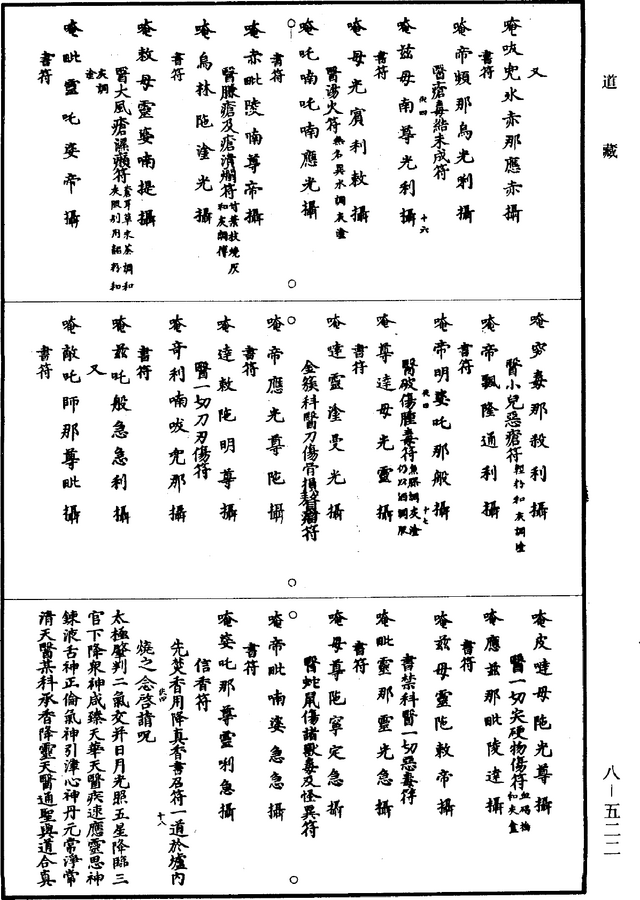 道藏
又
唵吱兜氷赤那應赤攝
書符
唵帝頻那烏光唎攝
醫瘡毒結未成符
唵茲母南尊光利攝
書符
唵母光賓利敕攝
醫湯火符無名異水調灰塗
唵吒喃吒喃應光攝
書符
唵赤毗陵喃尊帝攝
醫臁瘡及瘡潰爛符
唵烏林陁塗光攝
書符
唵敕母靈娑喃提攝
醫大風瘡濕癩符
灰調塗
唵毗靈吒娑帝攝
書符
唵穸毒那敕利攝
醫小兒惡瘡符輕粉和灰調塗
唵帝飄隆通利攝
書符
唵帝明娑吒那般攝
醫破傷腫毒符魚膠調灰塗仍以酒調服
唵尊達母光靈攝
書符
唵達靈塗曼光攝
金簇科醫刀傷骨損符
唵帝應光尊陁攝
書符
唵達敕陁明尊攝
醫一切刀刃傷符
唵奇利喃吱兜那攝
書符
唵茲吒般急急利攝
又
唵敵吒師那尊毗攝
書符
唵皮噠母陁光尊攝
醫一切尖硬物傷符
唵應茲那毗陵達攝
書符
唵茲母靈陁敕帝攝
書禁科醫一切惡毒符
唵毗靈那靈光急攝
書符
唵母尊陁寧定急攝
醫蛇鼠傷諸獸毒及怪異符
唵帝毗喃娑急急攝
書符
唵娑吒那尊靈唎急攝
信香符
先焚香用降真香書召符一道於爐内
燒之念啓請呪
太極肇判二氣交并日月光照五星降臨三
官下降衆神咸臻天華天醫疾速應靈思神
鍊液舌神正倫氣神引津心神丹元常淨常
清天醫某科承香降靈天醫通聖與道合真
八—五二二